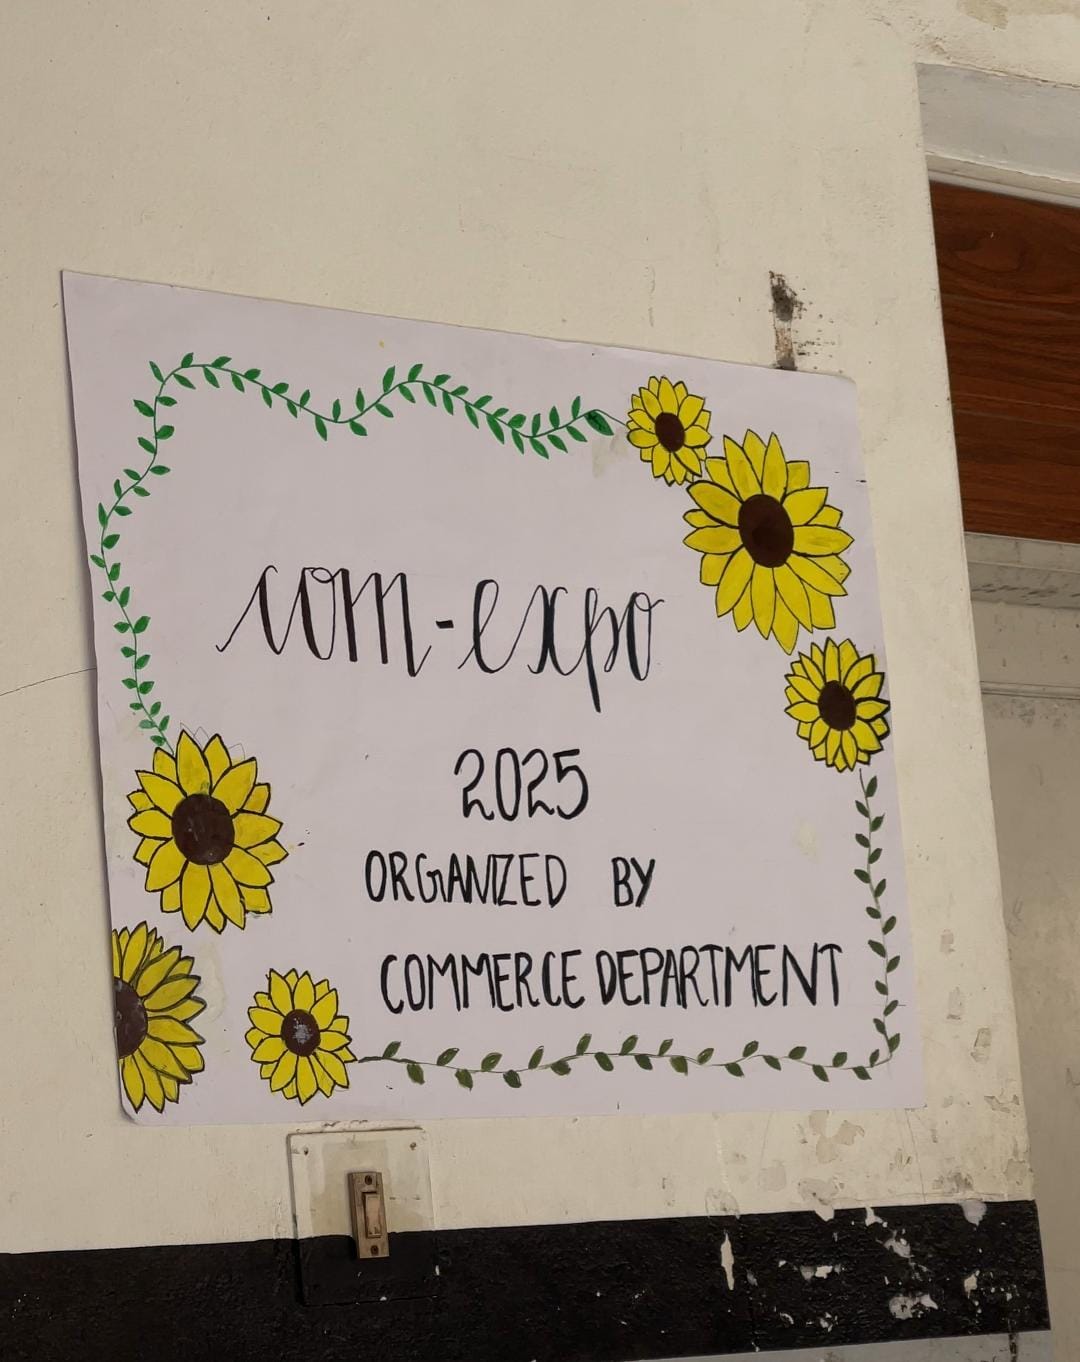 com-expo
2025
ORGANIZED BY
COMMERCE DEPARTMENT